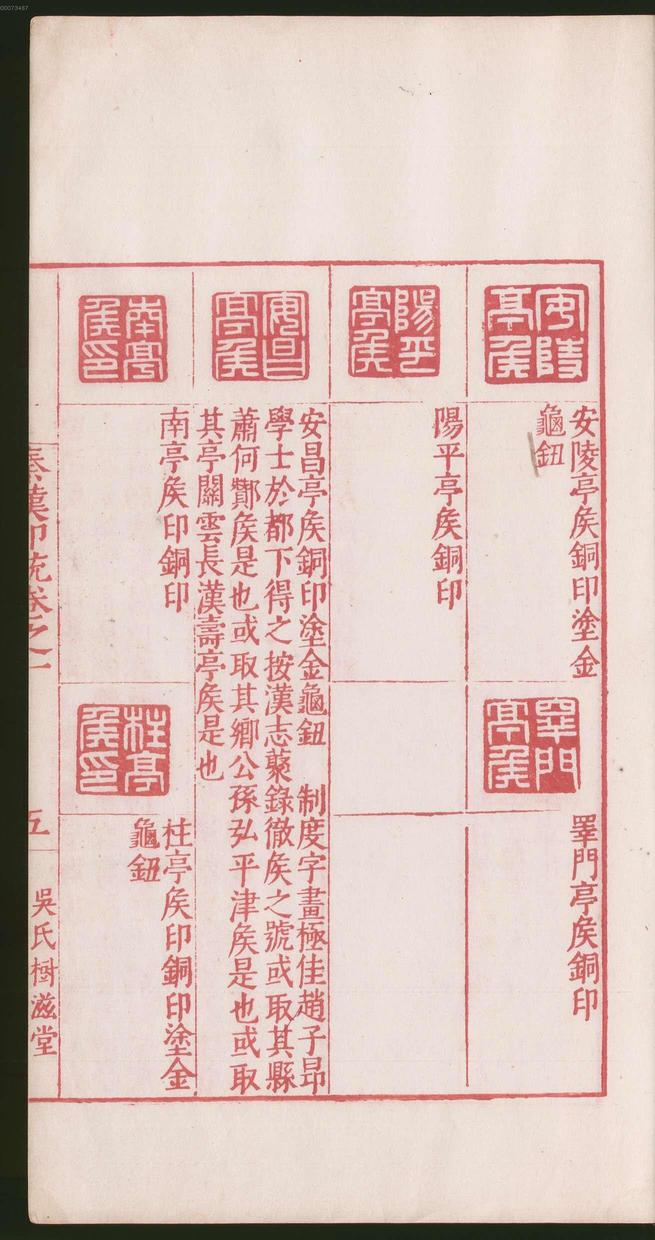 00073487
安陵
亭矦
安陵亭矦銅印塗金
龜鈕
睪門
亭矦
睪門亭矦銅印
陽平
亭矦
陽平亭矦銅印
安昌
亭矦
安昌亭矦銅印塗金龜鈕　制度字畫極佳趙子昂
學士於都下得之按漢志蔡錄徹矦之號或取其縣
蕭何酇矦是也或取其鄉公孫弘平津矦是也或取
其亭關雲長漢壽亭矦是也
南亭
矦印
南亭矦印銅印
枉亭
矦印
枉亭矦印銅印塗金
龜鈕
秦漢印統卷之一
五
吳氏樹滋堂